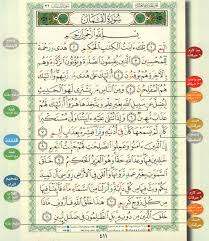 سُورَةُ لُقْمَان
بِسْمِ اللَّهِ الرَّحْمَٰنِ الرَّحِيمِ
الٓمٓ ١ تِلْكَ ءَايَٰتُ الْكِتَٰبِ الْحَكِيمِ ٢ هُدًى وَرَحْمَةً
لِّلْمُحْسِنِينَ ٣ الَّذِينَ يُقِيمُونَ الصَّلَوٰةَ وَيُؤْتُونَ الزَّكَوٰةَ وَهُم
بِالْءَاخِرَةِ هُمْ يُوقِنُونَ ٤ أُولَٰٓئِكَ عَلَىٰ هُدًى مِّن رَّبِّهِمْ وَأُولَٰٓئِكَ
هُمُ الْمُفْلِحُونَ ٥ وَمِنَ النَّاسِ مَن يَشْتَرِى لَهْوَ الْحَدِيثِ
لِيُضِلَّ عَن سَبِيلِ اللَّهِ بِغَيْرِ عِلْمٍ وَيَتَّخِذَهَا هُزُوًا أُولَٰٓئِكَ لَهُمْ
عَذَابٌ مُّهِينٌ ٦ وَإِذَا تُتْلَىٰ عَلَيْهِ ءَايَٰتُنَا وَلَّىٰ مُسْتَكْبِرًا
كَأَن لَّمْ يَسْمَعْهَا كَأَنَّ فِىٓ أُذُنَيْهِ وَقْرًا فَبَشِّرْهُ بِعَذَابٍ أَلِيمٍ ٧
إِنَّ الَّذِينَ ءَامَنُوا وَعَمِلُوا الصَّٰلِحَٰتِ لَهُمْ جَنَّٰتُ النَّعِيمِ ٨
خَٰلِدِينَ فِيهَا وَعْدَ اللَّهِ حَقًّا وَهُوَ الْعَزِيزُ الْحَكِيمُ ٩
خَلَقَ السَّمَٰوَٰتِ بِغَيْرِ عَمَدٍ تَرَوْنَهَا وَأَلْقَىٰ فِى الْأَرْضِ رَوَٰسِىَ
أَن تَمِيدَ بِكُمْ وَبَثَّ فِيهَا مِن كُلِّ دَآبَّةٍ وَأَنزَلْنَا مِنَ السَّمَآءِ مَآءً
فَأَنۢبَتْنَا فِيهَا مِن كُلِّ زَوْجٍ كَرِيمٍ ١٠ هَٰذَا خَلْقُ اللَّهِ فَأَرُونِى مَاذَا
خَلَقَ الَّذِينَ مِن دُونِهِ بَلِ الظَّٰلِمُونَ فِى ضَلَٰلٍ مُّبِينٍ ١١
٤١١